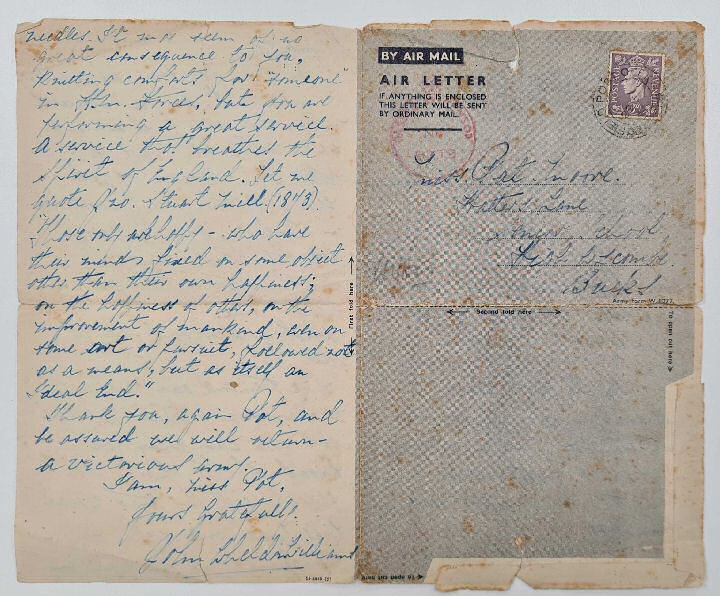 needles. It may seem of no
great consequence to you,
Knitting comforts for "someone"
in H.M. Forces, but you are
performing a great service.
A service that breathes the
spirit of England. Let me
quote Jno. Stuart Mill (1843).
"Those only are happy - who have
their minds fixed on some object
other than their own happiness;
on the happiness of others, on the
improvement of mankind, even on
some art or pursuit, followed not
as a means, but as itself an
Ideal End."
Thank you, again Pat, and
be assured we will return -
a victorious army.
I am, Miss Pat,
Yours Gratefully
John
BY AIR MAIL
AIR LETTER
IF ANYTHING IS ENCLOSED
THIS LETTER WILL BE SENT
BY ORDINARY MAIL.
POSTAGE
REVENUE
Miss Pat Moore.
Lane
School
High Wycombe
Bucks
Army Form W.3077.
First fold here
Second fold here
To open cut here
To open cut here